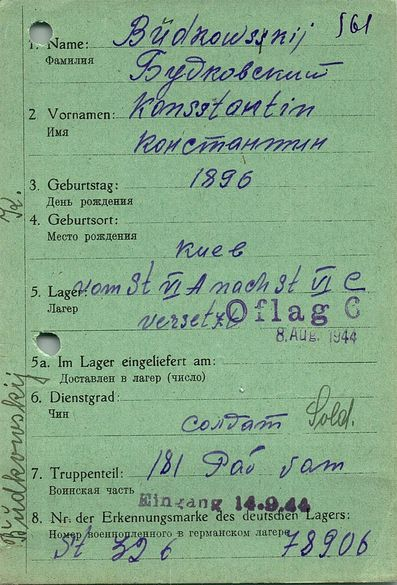 561
1. Name: Büdkowsskij
Фамилия Будковский
2 Vornamen: Konsstantin
Имя Константин
3. Geburtstag: 1896
День рождения
4. Geburtsort:
Место рождения
Киев
5. Lager: vom St VI A nach St VI C
Лагер versetzt
Oflag 6
8. Aug. 1944
5a. Im Lager eingeliefert am:
Доставлен в лагер (число)
6. Dienstgrad:
Чин
солдат Sold.
7. Truppenteil: 181 Раб бат
Воинская часть
Eingang 14.9.44
8. Nr. der Erkennungsmarke des deutschen Lagers:
Номер военнопленного в германском лагере
St 326 78906
Büdkowskij K.